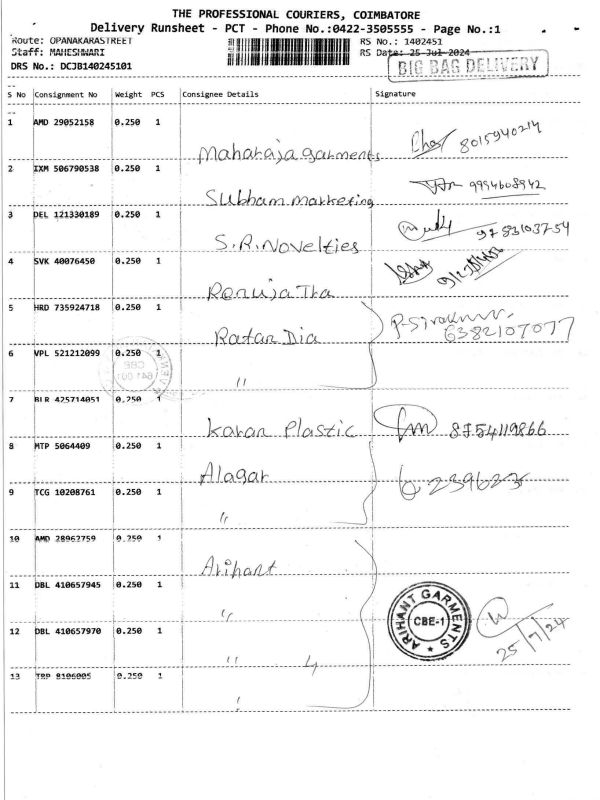 THE PROFESSIONAL COURIERS, COIMBATORE
Delivery Runsheet - PCT - Phone No.:0422-3505555 - Page No.:1
Route: OPANAKARASTREET
RS No.: 1402451
Staff: MAHESHWARI
RS Date: 25-Jul-2024
DRS No.: DCJB140245101
BIG BAG DELIVERY
S No Consignment No Weight PCS Consignee Details Signature
1 AMD 29052158 0.250 1
Maharaja garments 8015940214
2 IXM 506790538 0.250 1
Subham marketing 9994608942
3 DEL 121330189 0.250 1
S.R. Novelties 9783103754
4 SVK 40076450 0.250 1
5 HRD 735924718 0.250 1
Ratan Dia 6382107077
6 VPL 521212099 0.250 1
"
7 BLR 425714051 0.250 1
Karan Plastic 8754119866
8 MTP 5064409 0.250 1
Alagar
9 TCG 10208761 0.250 1
"
10 AMD 28962759 0.250 1
Arihant
11 DBL 410657945 0.250 1
"
ARIHANT GARMENTS
CBE-1
25/7/24
12 DBL 410657970 0.250 1
" 4
13 TRP 8106005 0.250 1
"